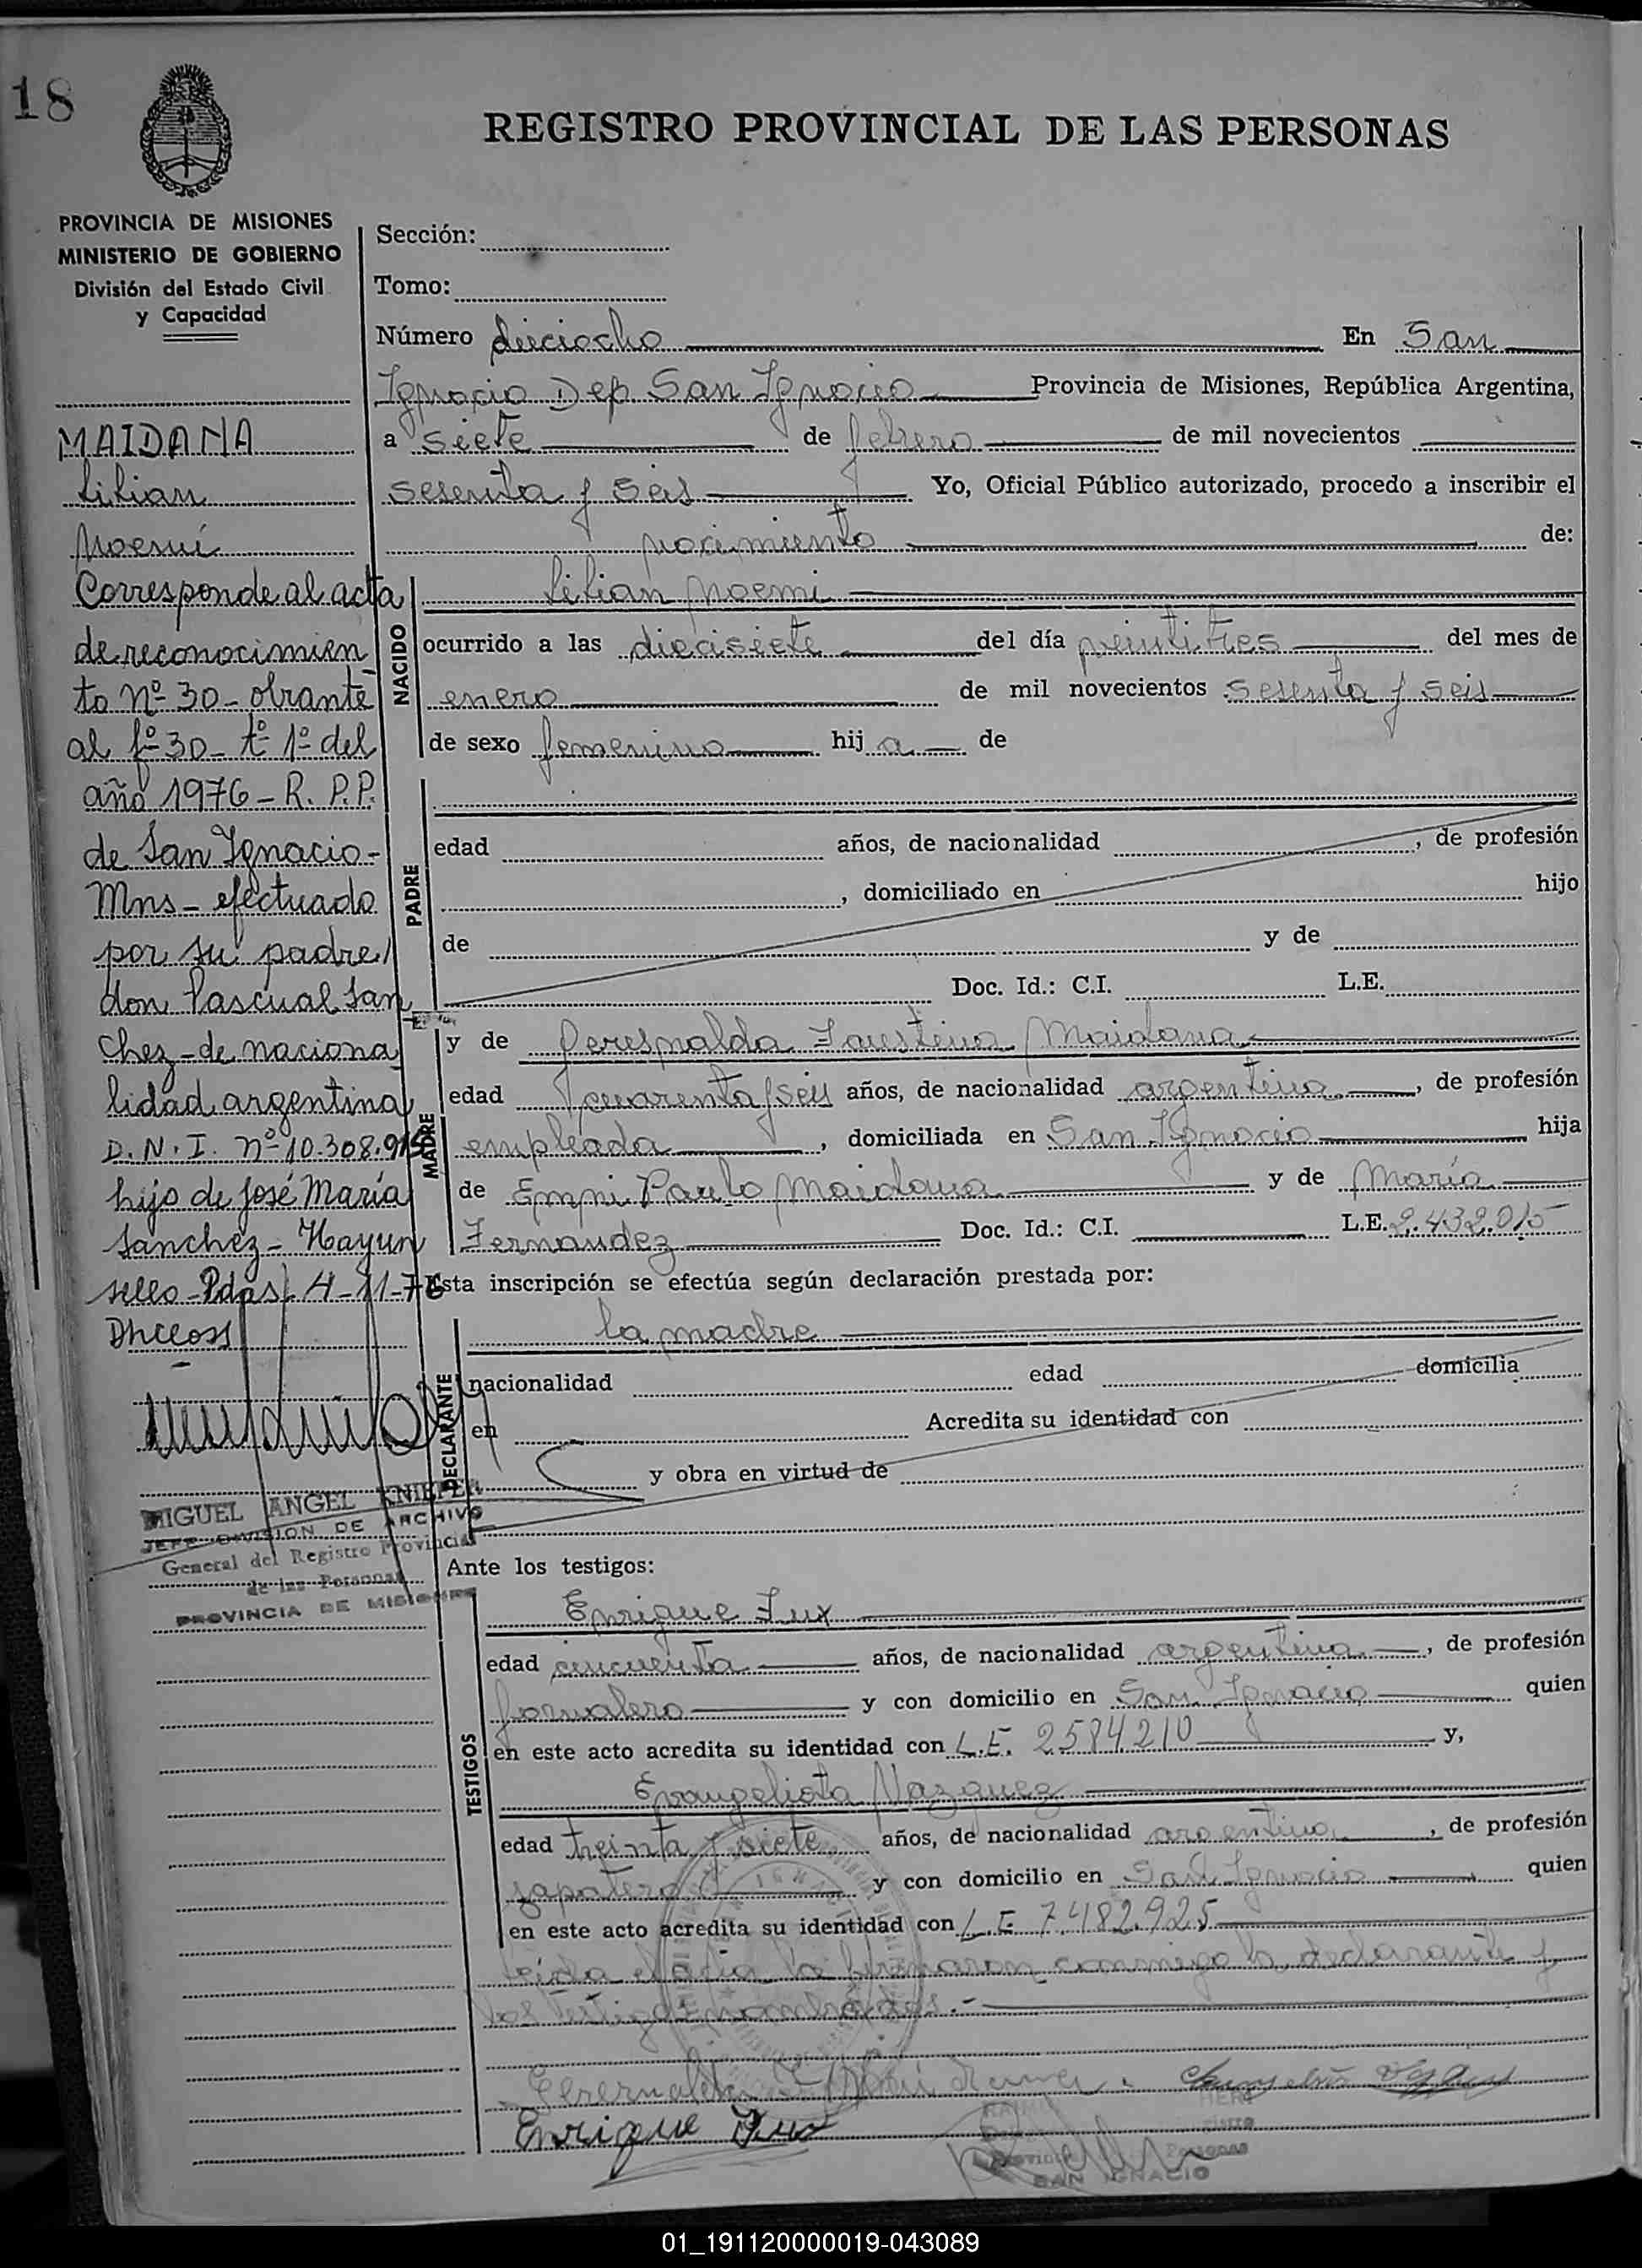 18
REGISTRO PROVINCIAL DE LAS PERSONAS
PROVINCIA DE MISIONES
MINISTERIO DE GOBIERNO
División del Estado Civil
y Capacidad
MAIDANA
Lilian
Noemí
Corresponde al acta
de reconocimien
to nº 30 - obrante
al fº 30 - tº 1º del
año 1976 - R. P. P.
de San Ignacio -
Mns - efectuado
por su padre
don Pascual San
chez - de naciona
lidad argentina
D. N. I. nº 10.308.915
hijo de José María
Sanchez - Hay un
sello - Pdas 4-11-76
MIGUEL ANGEL KNIEFER
JEFE DIVISION DE ARCHIVO
General del Registro Provincial
de las Personas
PROVINCIA DE MISIONES
Sección:
Tomo:
Número dieciocho En San
Ignacio Dep. San Ignacio Provincia de Misiones, República Argentina,
a siete de febrero de mil novecientos
sesenta y seis Yo, Oficial Público autorizado, procedo a inscribir el
nacimiento de:
NACIDO
Lilian Noemi
ocurrido a las diecisiete del día veintitres del mes de
enero de mil novecientos sesenta y seis
de sexo femenino hij a de
PADRE
edad años, de nacionalidad , de profesión
, domiciliado en hijo
de y de
Doc. Id.: C.I. L.E.
MADRE
y de Faustina Maidana
edad cuarenta y seis años, de nacionalidad argentina , de profesión
empleada , domiciliada en San Ignacio hija
de Paulo Maidana y de María
Fernandez Doc. Id.: C.I. L.E. 2.432.015
Esta inscripción se efectúa según declaración prestada por:
DECLARANTE
la madre
nacionalidad edad domicilia
en Acredita su identidad con
y obra en virtud de
Ante los testigos:
TESTIGOS
Enrique Fux
edad cincuenta años, de nacionalidad argentina , de profesión
jornalero y con domicilio en San Ignacio quien
en este acto acredita su identidad con L.E. 2584210 y,
Evangelista Vazquez
edad treinta y siete años, de nacionalidad argentina , de profesión
zapatero y con domicilio en San Ignacio quien
en este acto acredita su identidad con L.E. 7.482.925
leida el acta la firmaron conmigo la declarante y
los testigos nombrados.-
Enrique Fux
SAN IGNACIO
01_191120000019-043089